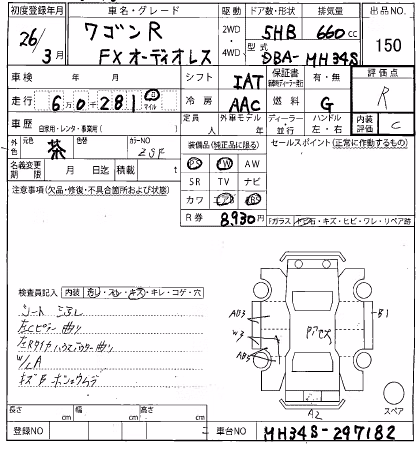 初度登録年月 車名・グレード 駆動 ドア数・形状 排気量 出品NO.
26年 3月 ワゴンR 2WD・4WD 5HB 660cc 150
FXオーディオレス 型式 DBA-MH34S
車検 年 月 シフト IAT 保証書 有・無 評価点
走行 6,0281 マイル 冷房 AAC 燃料 G R
車歴 自家用・レンタ・事業用( ) 定員 人 外車モデル 年 ディーラー・並行 ハンドル 左・右 内装評価 C
外色 元色 茶 色替 カラーNO ZSF 装備品(純正品に限る) セールスポイント(正常に作動するもの)
名義変更期限 月 日迄 積載 t PS PW AW
SR TV ナビ
注意事項(欠品・修復・不具合箇所および状態) カワ
R券 8,930円
Fガラス ヒビ・ワレ・リペア跡
検査員記入 内装 キレ・コゲ・穴
シート
左Cピラー曲り
W/LA
AB3
W3
AB3
B1
A2
スペア
長さ cm 幅 cm 高さ cm
登録NO 車台NO MH34S-297182